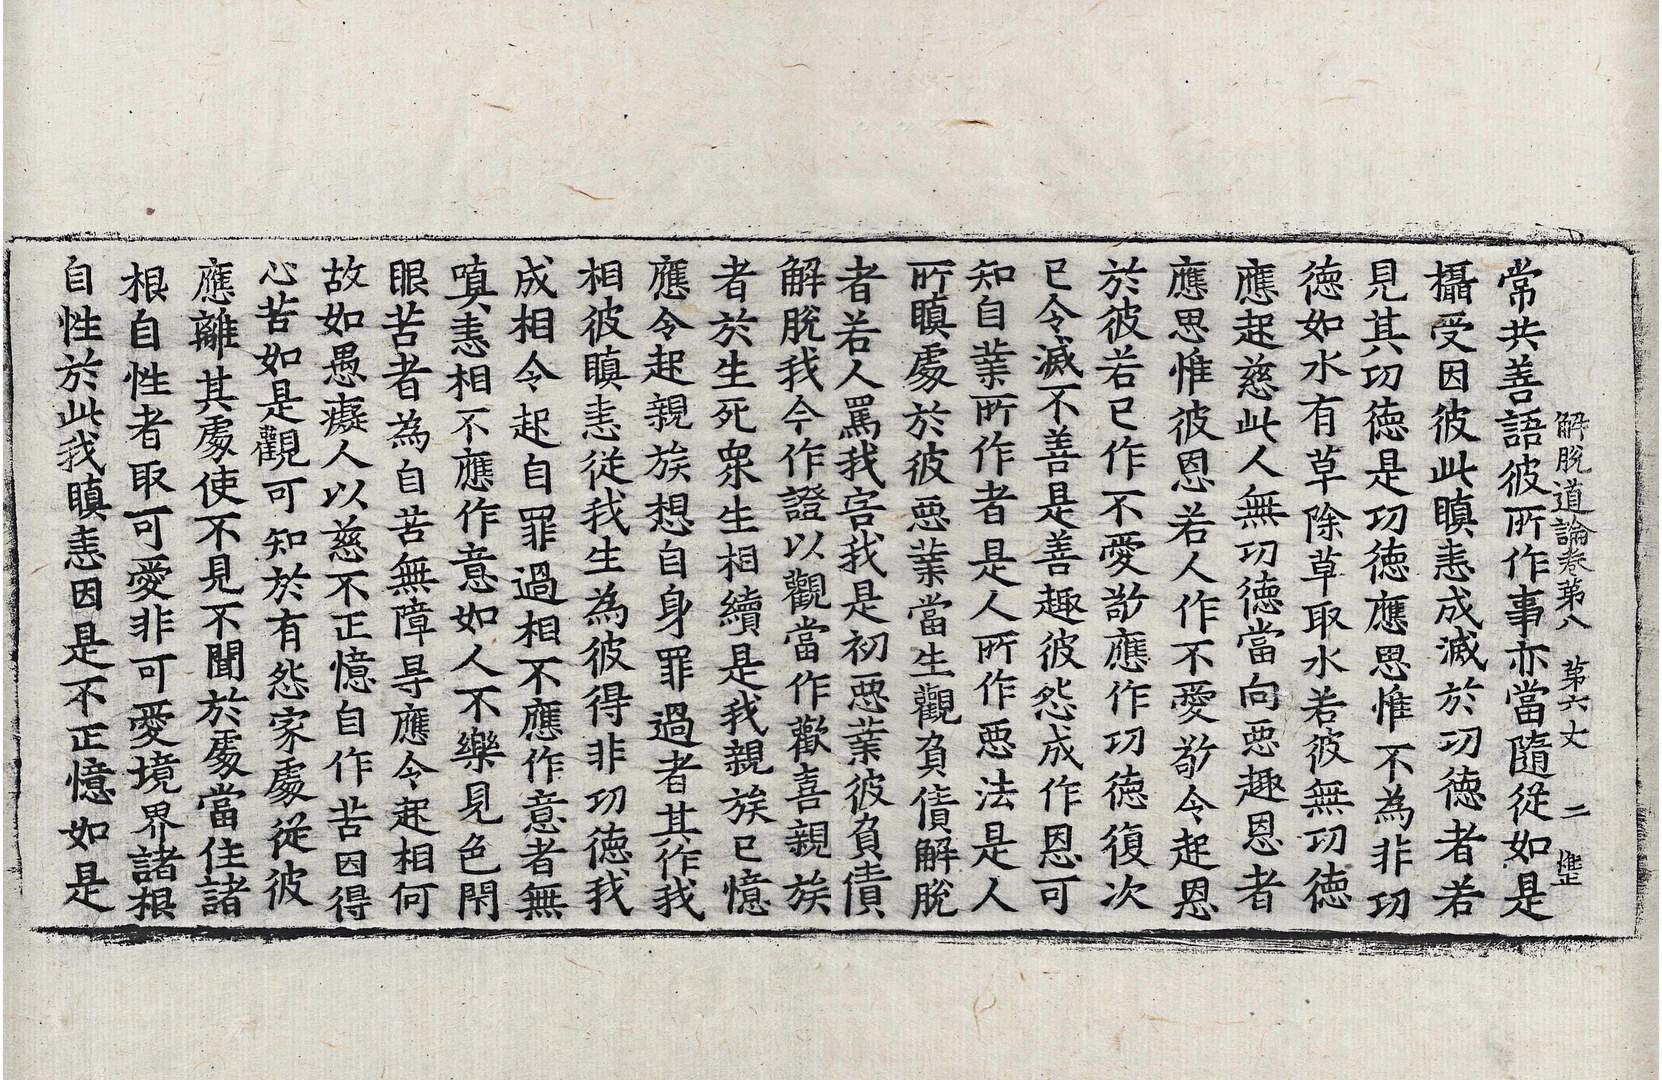 解脫道論卷第八　第六丈　二
常共善語彼所作事亦當隨從如是
攝受因彼此瞋恚成滅於功德者若
見其功德是功德應思惟不為非功
德如水有草除草取水若彼無功德
應起慈此人無功德當向惡趣恩者
應思惟彼恩若人作不愛敬令起恩
於彼若已作不愛敬應作功德復次
已令滅不善是善趣彼怨成作恩可
知自業所作者是人所作惡法是人
所瞋處於彼惡業當生觀負債解脫
者若人罵我害我是初惡業彼負債
解脫我今作證以觀當作歡喜親族
者於生死眾生生相續是我親族已憶
應令起親族想自身罪過者其作我
相彼瞋恚從我生為彼得非功德我
成相令起自罪過相不應作意者無
嗔恚相不應作意如人不樂見色閉
眼苦者為自苦無障㝵應令起相何
故如愚癡人以慈不正憶自作苦因得
心苦如是觀可知於有怨家處從彼
應離其處使不見不聞於處當住諸
根自性者取可愛非可愛境界諸根
自性於此我瞋恚因是不正憶如是